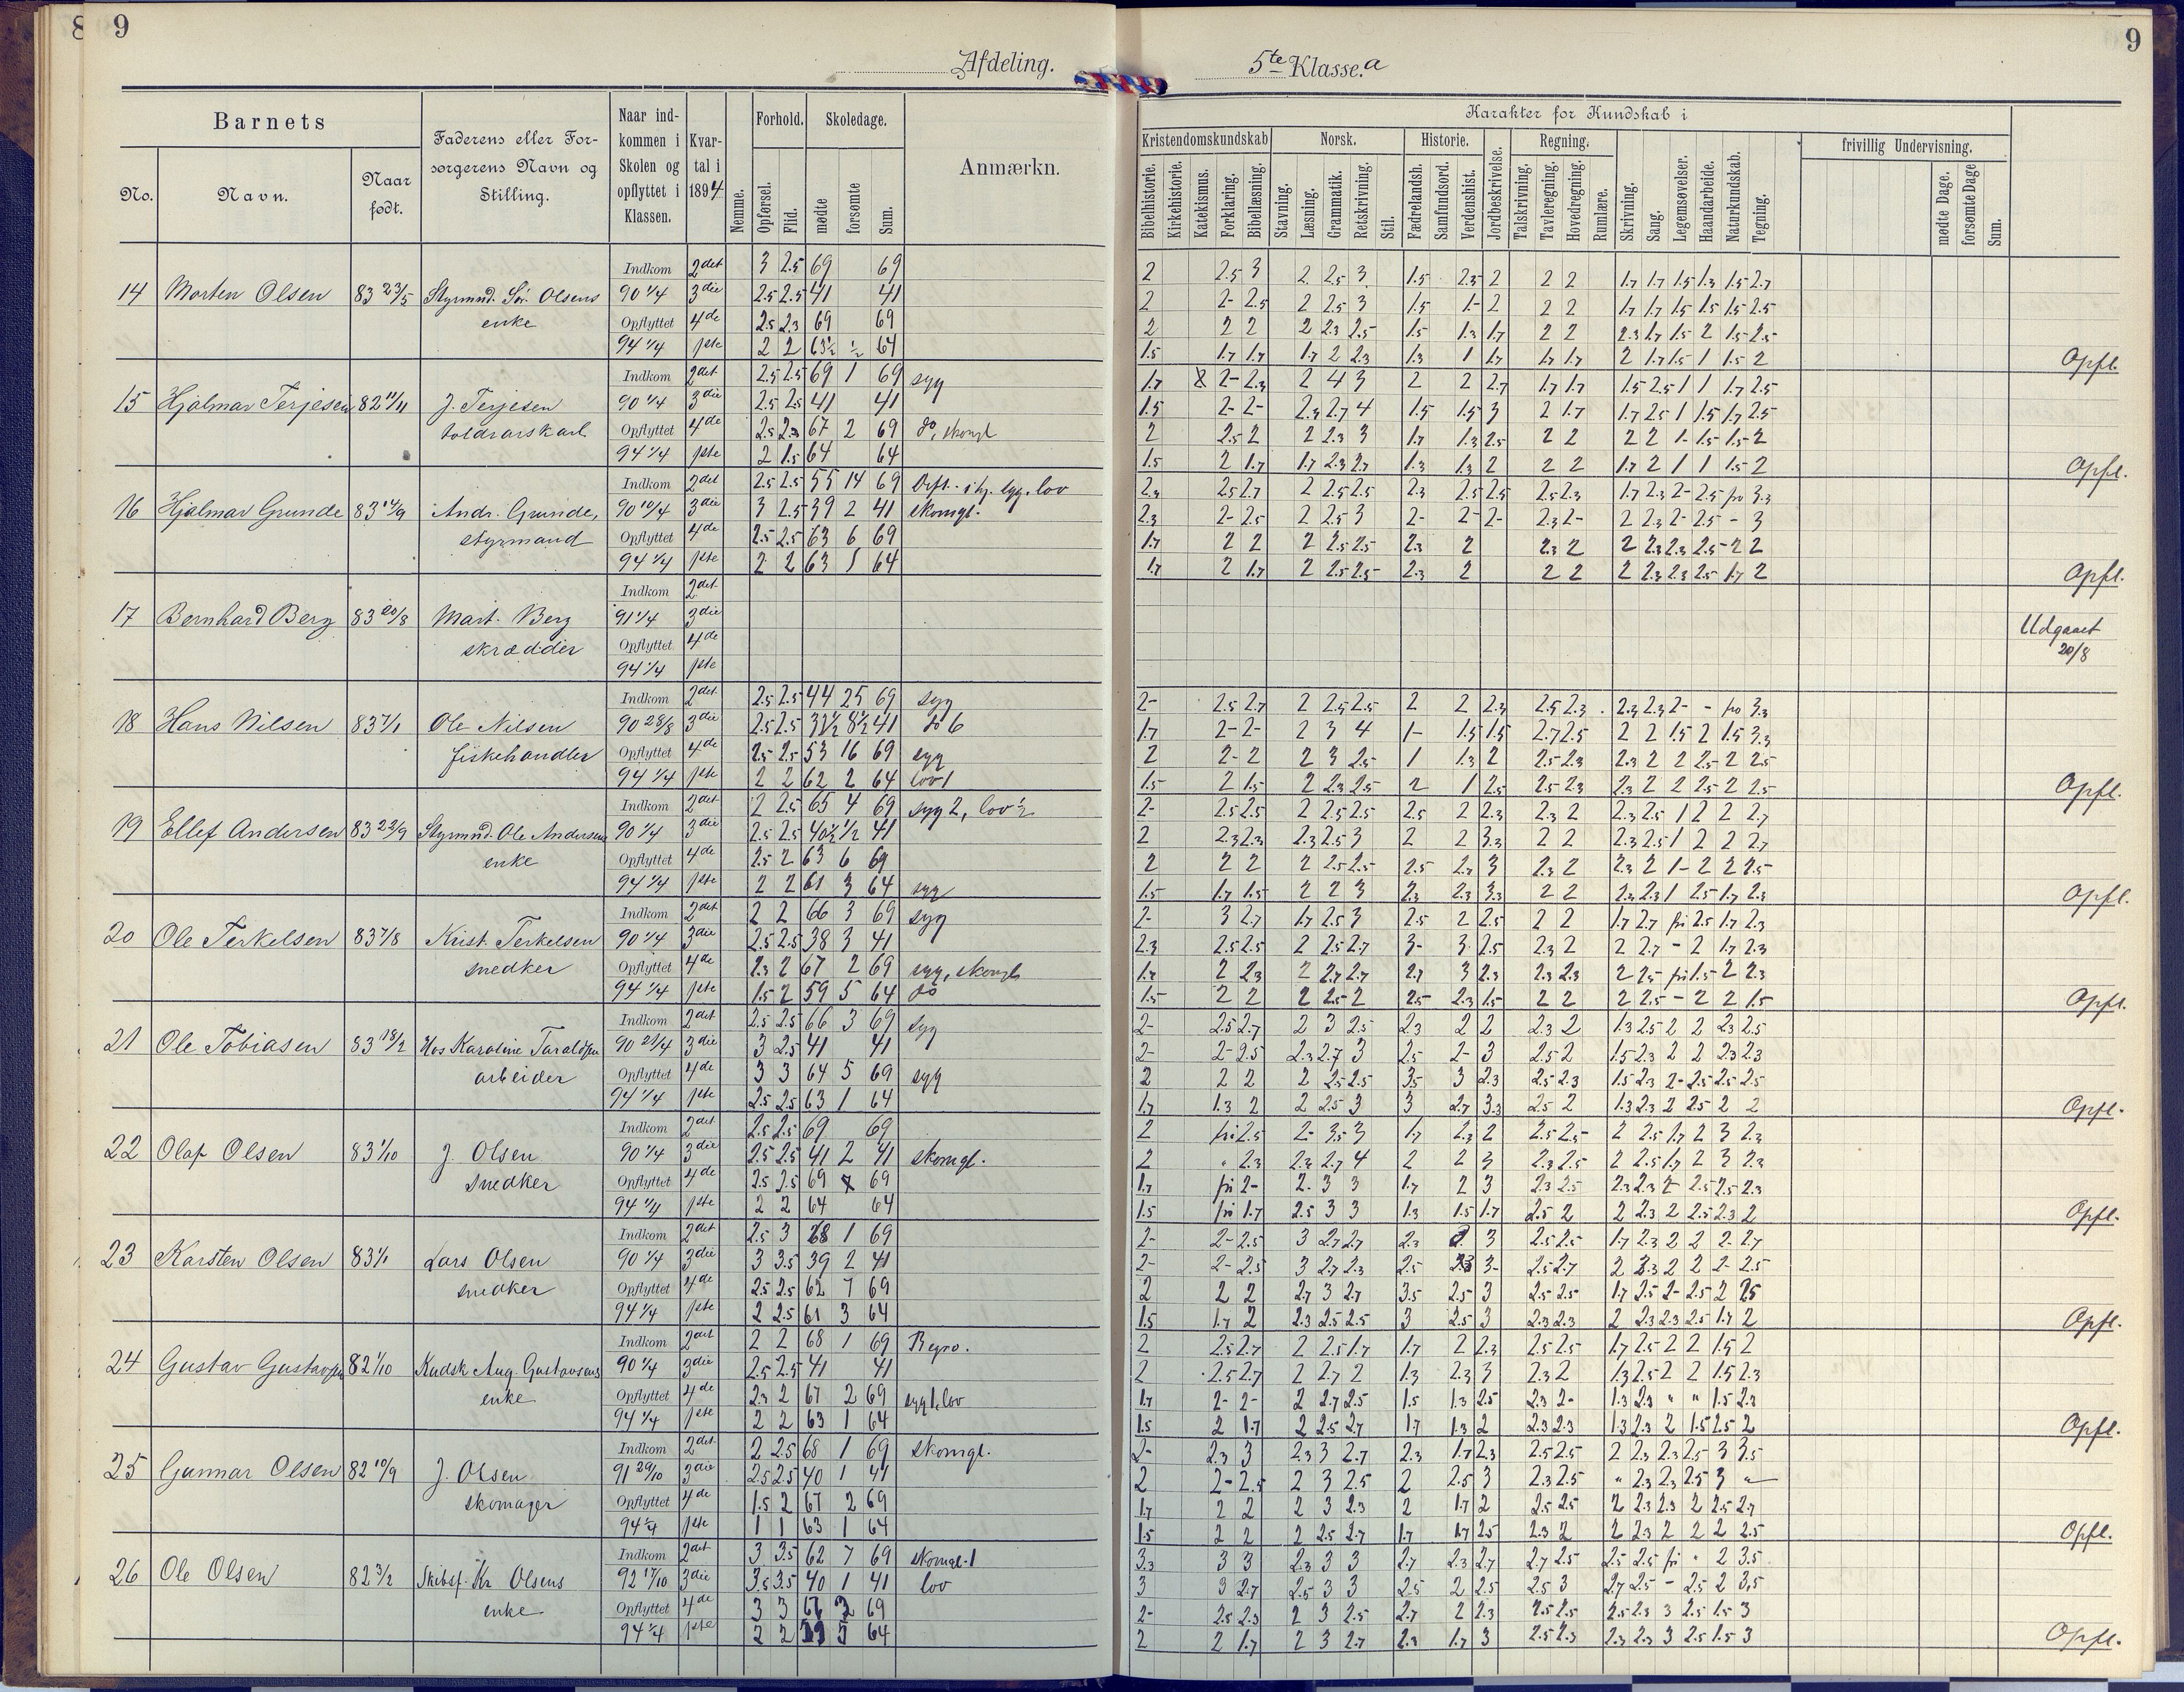 8 9
Afdeling.
Barnets
No.
Navn.
Naar født.
Faderens eller Forsørgerens Navn og Stilling.
Naar indkommen i Skolen og opflyttet i Klassen.
Kvartal i 1894
Nemme.
Forhold.
Opførsel.
Flid.
Skoledage.
mødte
forsømte
Sum.
Anmærkn.
14 Morten Olsen 83 23/5 Styrmd. Sør. Olsens enke
Indkom 90 1/4 Opflyttet 94 1/4
2det 3 2.5 69 69
3die 2.5 2.5 41 41
4de 2.5 2.3 69 69
1ste 2 2 63½ ½ 64
15 Hjalmar Terjesen 82 11/11 J. Terjesen
Indkom 90 1/4 Opflyttet 94 1/4
2det 2.5 2.5 69 1 69 syg
3die 2.5 2.5 41 41
4de 2.5 2.3 67 2 69 do, skomgl
1ste 2 1.5 64 64
16 Hjalmar Grunde 83 14/9 Andr. Grunde, styrmand
Indkom 90 10/4 Opflyttet 94 1/4
2det 2.5 2.5 55 14 69 syg, lov
3die 3 2.5 39 2 41 skomgl.
4de 2.5 2.5 63 6 69
1ste 2 2 63 1 64
17 Bernhard Berg 83 20/8 Mart. Berg skrædder
Indkom 91 1/4 Opflyttet 94 1/4
2det
3die
4de
1ste
18 Hans Nilsen 83 7/1 Ole Nilsen fiskehandler
Indkom 90 28/8 Opflyttet 94 1/4
2det 2.5 2.5 44 25 69 syg
3die 2.5 2.5 32½ 8½ 41 do 6
4de 2.5 2.5 53 16 69 syg
1ste 2 2 62 2 64 lov 1
19 Ellef Andersen 83 22/9 Styrmd. Ole Andersens enke
Indkom 90 1/4 Opflyttet 94 1/4
2det 2 2.5 65 4 69 syg 2, lov ½
3die 2.5 2.5 40½ ½ 41
4de 2.5 2 63 6 69
1ste 2 2 61 3 64 syg
20 Ole Terkelsen 83 7/8 Krist. Terkelsen snedker
Indkom 90 1/4 Opflyttet 94 1/4
2det 2 2 66 3 69 syg
3die 2.5 2.5 38 3 41
4de 2.3 2 67 2 69 syg, skomgl
1ste 1.5 2 59 5 64 do
21 Ole Tobiasen 83 18/2 Hos Karoline Taraldsen arbeider
Indkom 90 21/4 Opflyttet 94 1/4
2det 2.5 2.5 66 3 69 syg
3die 3 2.5 41 41
4de 3 3 64 5 69 syg
1ste 2.5 2.5 63 1 64
22 Olaf Olsen 83 1/10 J. Olsen snedker
Indkom 90 1/4 Opflyttet 94 1/4
2det 2.5 2.5 69 69
3die 2.5 2.5 41 2 41 skomgl.
4de 2.5 2.5 69 69
1ste 2 2 64 64
23 Karsten Olsen 83 1/1 Lars Olsen snedker
Indkom 90 1/4 Opflyttet 94 1/4
2det 2.5 3 68 1 69
3die 3 3.5 39 2 41
4de 2.5 2.5 62 7 69
1ste 2 2.5 61 3 64
24 Gustav Gustavsen 82 1/10 Kudsk Aug. Gustavsens enke
Indkom 90 1/4 Opflyttet 94 1/4
2det 2 2 68 1 69
3die 2.5 2.5 41 41
4de 2.3 2 67 2 69 syg 1, lov
1ste 2 2 63 1 64
25 Gunnar Olsen 82 10/9 J. Olsen skomager
Indkom 91 29/10 Opflyttet 94 1/4
2det 2 2.5 68 1 69 skomgl.
3die 2.5 2.5 40 1 41
4de 1.5 2 67 2 69
1ste 1 1 63 1 64
26 Ole Olsen 82 3/2 Skibsf. Kr. Olsens enke
Indkom 92 17/10 Opflyttet 94 1/4
2det 3 3.5 62 7 69 skomgl. 1
3die 3.5 3.5 40 1 41 lov
4de 3 3 69
1ste 2 2 5 64
9
5te Klasse. a
Karakter for Kundskab i
Kristendomskundskab
Bibelhistorie.
Kirkehistorie.
Katekismus.
Forklaring.
Bibellæsning.
Norsk.
Stavning.
Læsning.
Grammatik.
Retskrivning.
Stil.
Historie.
Fædrelandsh.
Samfundsord.
Verdenshist.
Jordbeskrivelse.
Regning.
Talskrivning.
Tavleregning.
Hovedregning.
Rumlære.
Skrivning.
Sang.
Legemsøvelser.
Haandarbeide.
Naturkundskab.
Tegning.
frivillig Undervisning.
mødte Dage.
forsømte Dage
Sum.
2 2.5 3 2 2.5 3 1.5 2.3 2 2 2 1.7 1.7 1.5 1.3 1.5 2.7
2 2- 2.5 2 2.5 3 1.5 1- 2 2 2 1.7 1.7 1.5 1.5 1.5 2.5
2 2 2 2 2.3 2.5 1.5 1.3 1.7 2 2 2.3 1.7 1.5 2 1.5 2.5
1.5 1.7 1.7 1.7 2 2.3 1.3 1 1.7 1.7 1.7 2 1.7 1.5 1 1.5 2 Opfl.
1.7 2- 2.3 2 4 3 2 2 2.7 1.7 1.7 1.5 2.5 1 1 1.7 2.5
1.5 2- 2- 2.3 2.7 4 1.5 1.5 3 2 1.7 1.7 2.5 1 1.5 1.7 2.5
2 2.5 2 2 2.3 3 1.7 1.3 2.5 2 2 2 2 1- 1.5 1.5 2
1.5 2 1.7 1.7 2.3 2.7 1.3 1.3 2 2 2 1.7 2 1 1 1.5 2 Opfl.
2.3 2.5 2.7 2 2.5 2.5 2.3 2.5 2.5 2.5 2.3 1.7 2.3 2- 2.5 fri 3.3
2.3 2- 2.5 2 2.5 3 2- 2- 2- 2.3 2- 2 2.3 2- 2.5 - 3
1.7 2 2 2 2.5 2.5 2.3 2 2.3 2 2 2.3 2.3 2.5 2 2
1.7 2 1.7 2 2.5 2.5 2.3 2 2 2 2 2.3 2.3 2.5 1.7 2 Opfl.
Udgaaet 20/8
2- 2.5 2.7 2 2.5 2.5 2 2 2.3 2.5 2.3 2.3 2.3 2- - fri 3.3
1.7 2- 2- 2 3 4 1- 1.5 1.5 2.7 2.5 2 2 1.5 2 1.5 3.3
2 2- 2 2 3 2.5 1 1.3 2 2.5 2.3 2.3 2 2 2.5 2 2.5
1.5 2 1.5 2 2.3 2.5 2 1 2.5 2.5 2.3 2.3 2 2 2.5 2 2.5 Opfl.
2- 2.5 2.5 2 2.5 2.5 2.5 2 2.3 2.3 2 2.3 2.5 1 2 2 2.7
2 2.3 2.3 2.3 2.5 3 2 2 3.3 2 2 2.3 2.5 1 2 2 2.7
2 2 2 2 2.5 2.5 2.5 2.7 3 2.3 2 2.3 2 1- 2 2 2.5
1.5 1.7 1.5 2 2 3 2.3 2.3 3.3 2 2 2.3 2.3 1 2.5 1.7 2.3 Opfl.
2- 3 2.7 1.7 2.5 3 2.5 2 2.5 2 2 1.7 2.7 fri 2.5 1.7 2.3
2.3 2.5 2.5 2 2.5 2.7 3- 3 2.5 2.3 2 2 2.7 - 2 1.7 2.3
1.7 2 2.3 2 2.7 2.7 2.7 3 2.3 2.3 2.3 2 2.5 fri 1.5 2 2.3
1.5 2 2 2 2.5 2 2.5 2.3 1.5 2 2 2 2.5 - 2 2 1.5 Opfl.
2- 2.5 2.7 2 3 2.5 2.3 2 2 2.3 2 1.3 2.5 2 2 2.3 2.5
2- 2- 2.5 2.3 2.7 3 2.5 2- 3 2.5 2 1.5 2.3 2 2 2.3 2.3
2 2 2 2 2.5 2.5 3.5 3 2.3 2.5 2.3 1.5 2.3 2- 2.5 2.5 2.5
1.7 1.3 2 2 2.5 3 3 2.7 3.3 2.5 2 1.3 2.3 2 2.5 2 2 Opfl.
2 fri 2.5 2- 3.5 3 1.7 2.3 2 2.5 2.5 2 2.5 1.7 2 3 2.3
2 " 2.3 2.3 2.7 4 2 2 3 2.3 2.5 2 2.5 1.7 2 3 2.3
1.7 fri 2- 2 3 3 1.7 2 3 2.3 2.5 2.3 2.3 2 2.5 2.5 2.3
1.5 fri 1.7 2.5 3 3 1.3 1.5 1.7 2.5 2 2 2.3 2 2.5 2.3 2 Opfl.
2- 2- 2.5 3 2.7 2.7 2.3 2 3 2.5 2.5 1.7 2.3 2 2 2 2.7
2- 2- 2.5 3 2.7 2.3 2.5 3- 2.5 2.7 2 2.3 2 2 2- 2.5
2 2 2 2.7 3 2.7 3.5 2.5 3 2.5 2.5 1.7 2.5 2- 2.5 2 2.5
1.5 1.7 2 2.3 2.5 2.5 3 2.5 3 2.3 2.3 2 2.3 2.3 2.5 1.7 2 Opfl.
2 2.5 2.7 2 2.5 1.7 1.7 2 2.3 2.5 2.5 1.7 2.5 2 2 1.5 2
2 2.5 2.7 2 2.7 2 1.3 2.3 3 2.3 2 1.3 2.5 2 2 1.5 2.3
1.7 2- 2- 2 2.7 2.5 1.5 1.3 2.5 2.3 2- 1.3 2.3 " " 1.5 2.3
1.5 2 1.7 2 2.5 2.7 1.7 1.3 2 2.3 2.3 1.3 2.3 2 1.5 2.5 2 Opfl.
2- 2.3 3 2.3 3 2.7 2.3 1.7 2.3 2.5 2.5 2 2.3 2.3 2.5 3 3.5
2 2- 2.5 2 3 2.5 2 2.5 3 2.3 2.5 " 2.3 2.3 2.5 3 "
1.7 2 2 2 3 2.3 2 1.7 2 2.5 2.5 2 2.3 2.3 2 2.5 2.7
1.5 2 2 2 2.5 2.7 1.7 1.7 2.5 2.3 2 2 2.3 2 2 2 2.5 Opfl.
3.3 3 3 2.3 3 3 2.7 2.3 2.7 2.7 2.5 2.5 2.5 fri " 2 3.5
3 3 2.7 2.5 3 3 2.5 2 2.5 2.5 3 2.7 2.5 - 2.5 2 3,5
2- 2.5 2.3 2 3 2.5 2.7 2 2.3 2.5 2.5 2.5 2.3 3 2.5 1.5 3
2 2 1.7 2 3 2.7 2.3 1.7 3 2.5 2.3 2.3 2.3 3 2.5 1.5 3 Opfl.